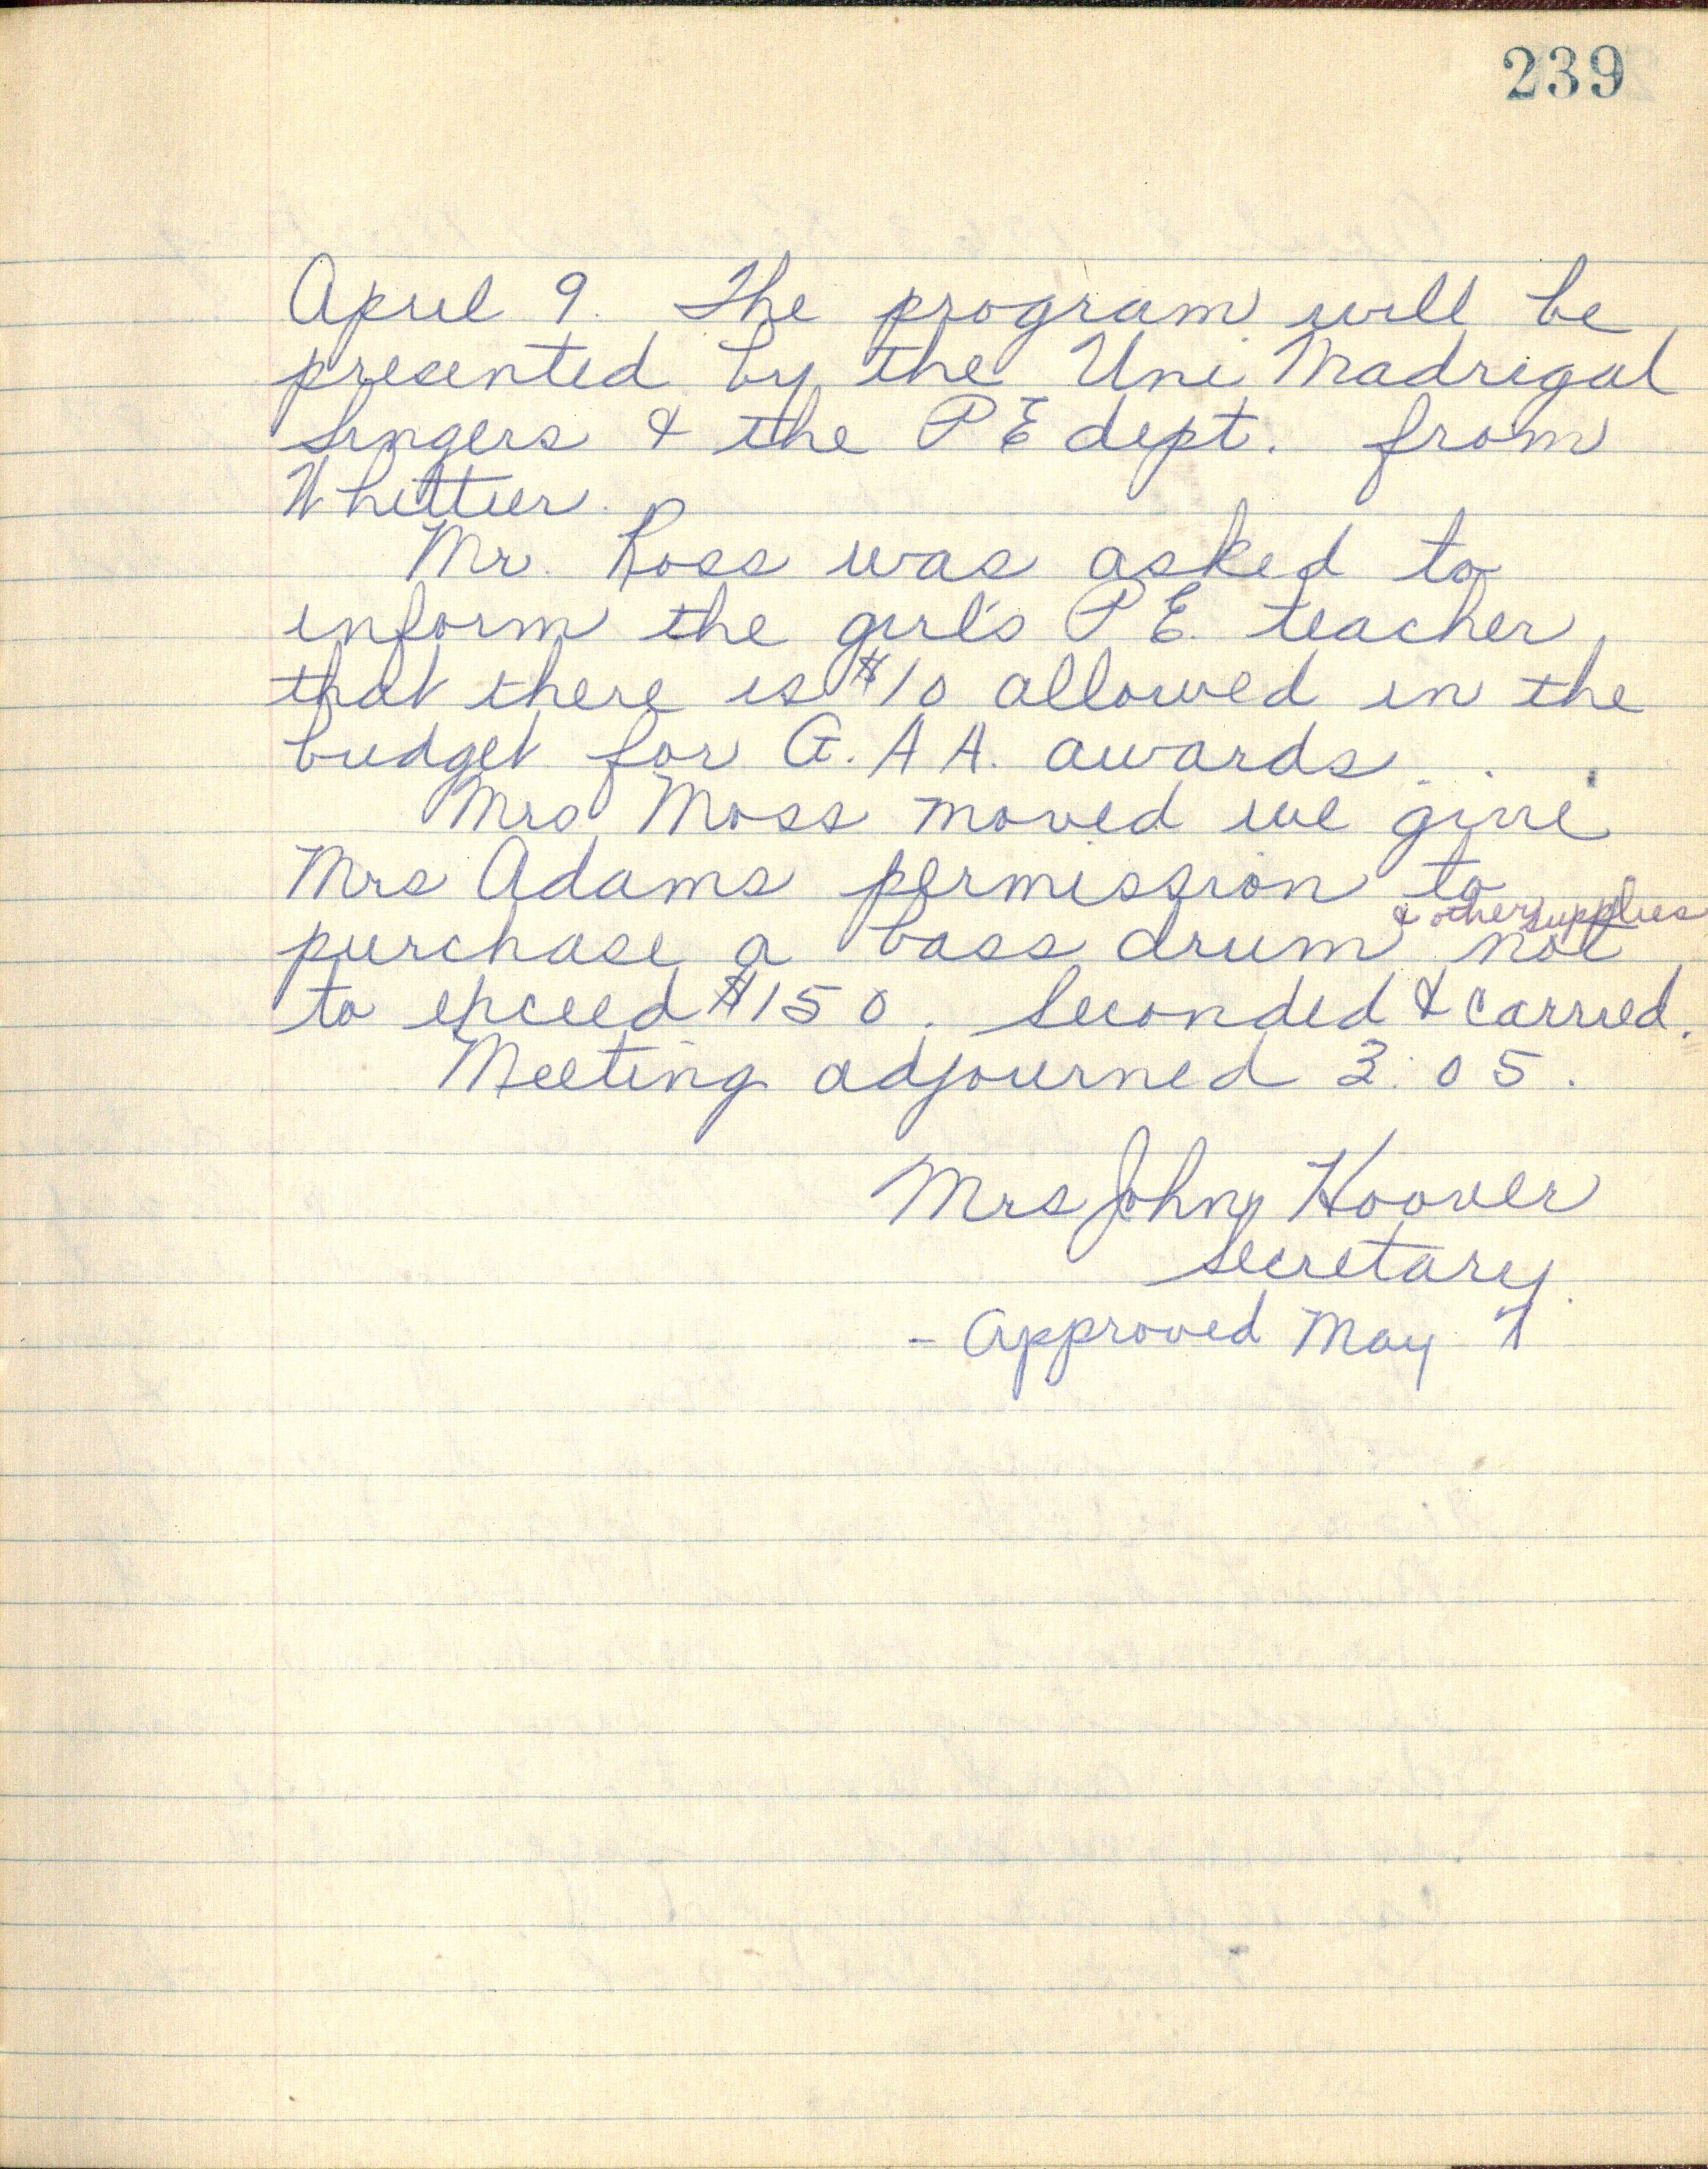 239
April 9. The program will be
presented by the Uni Madrigal
Singers & the P E dept. from
Whittier.
Mr. Ross was asked to
inform the girl's P E. teacher
that there is $10 allowed in the
budget for G. A A. awards.
Mrs Moss moved we give
Mrs Adams permission to
& other supplies
purchase a bass drum not
to exceed $150. Seconded & carried.
Meeting adjourned 3:05.
Mrs John Hoover
Secretary.
- Approved May 7